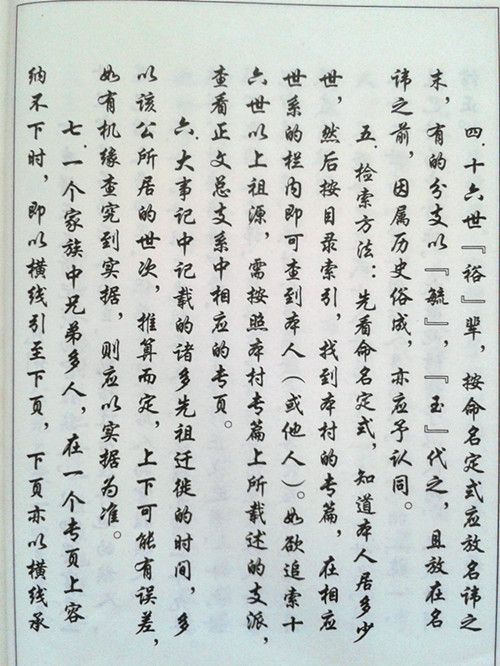 四．十六世『裕』辈，按命名定式应放名讳之
末，有的分支以『毓』『玉』代之，且放在名
讳之前，因属历史俗成，亦应予认同。
五．检索方法：先看命名定式，知道本人居多少
世，然后按目录索引，找到本村的专篇，在相应
世系的栏内即可查到本人（或他人）。如欲追索十
六世以上祖源，需按照本村专篇上所载述的支派，
查看正文总支系中相应的专页。
六．大事记中记载的诸多先祖迁徙的时间，多
以该公所居的世次，推算而定，上下可能有误差，
如有机缘查究到实据，则应以实据为准。
七．一个家族中兄弟多人，在一个专页上容
纳不下时，即以横线引至下页，下页亦以横线承